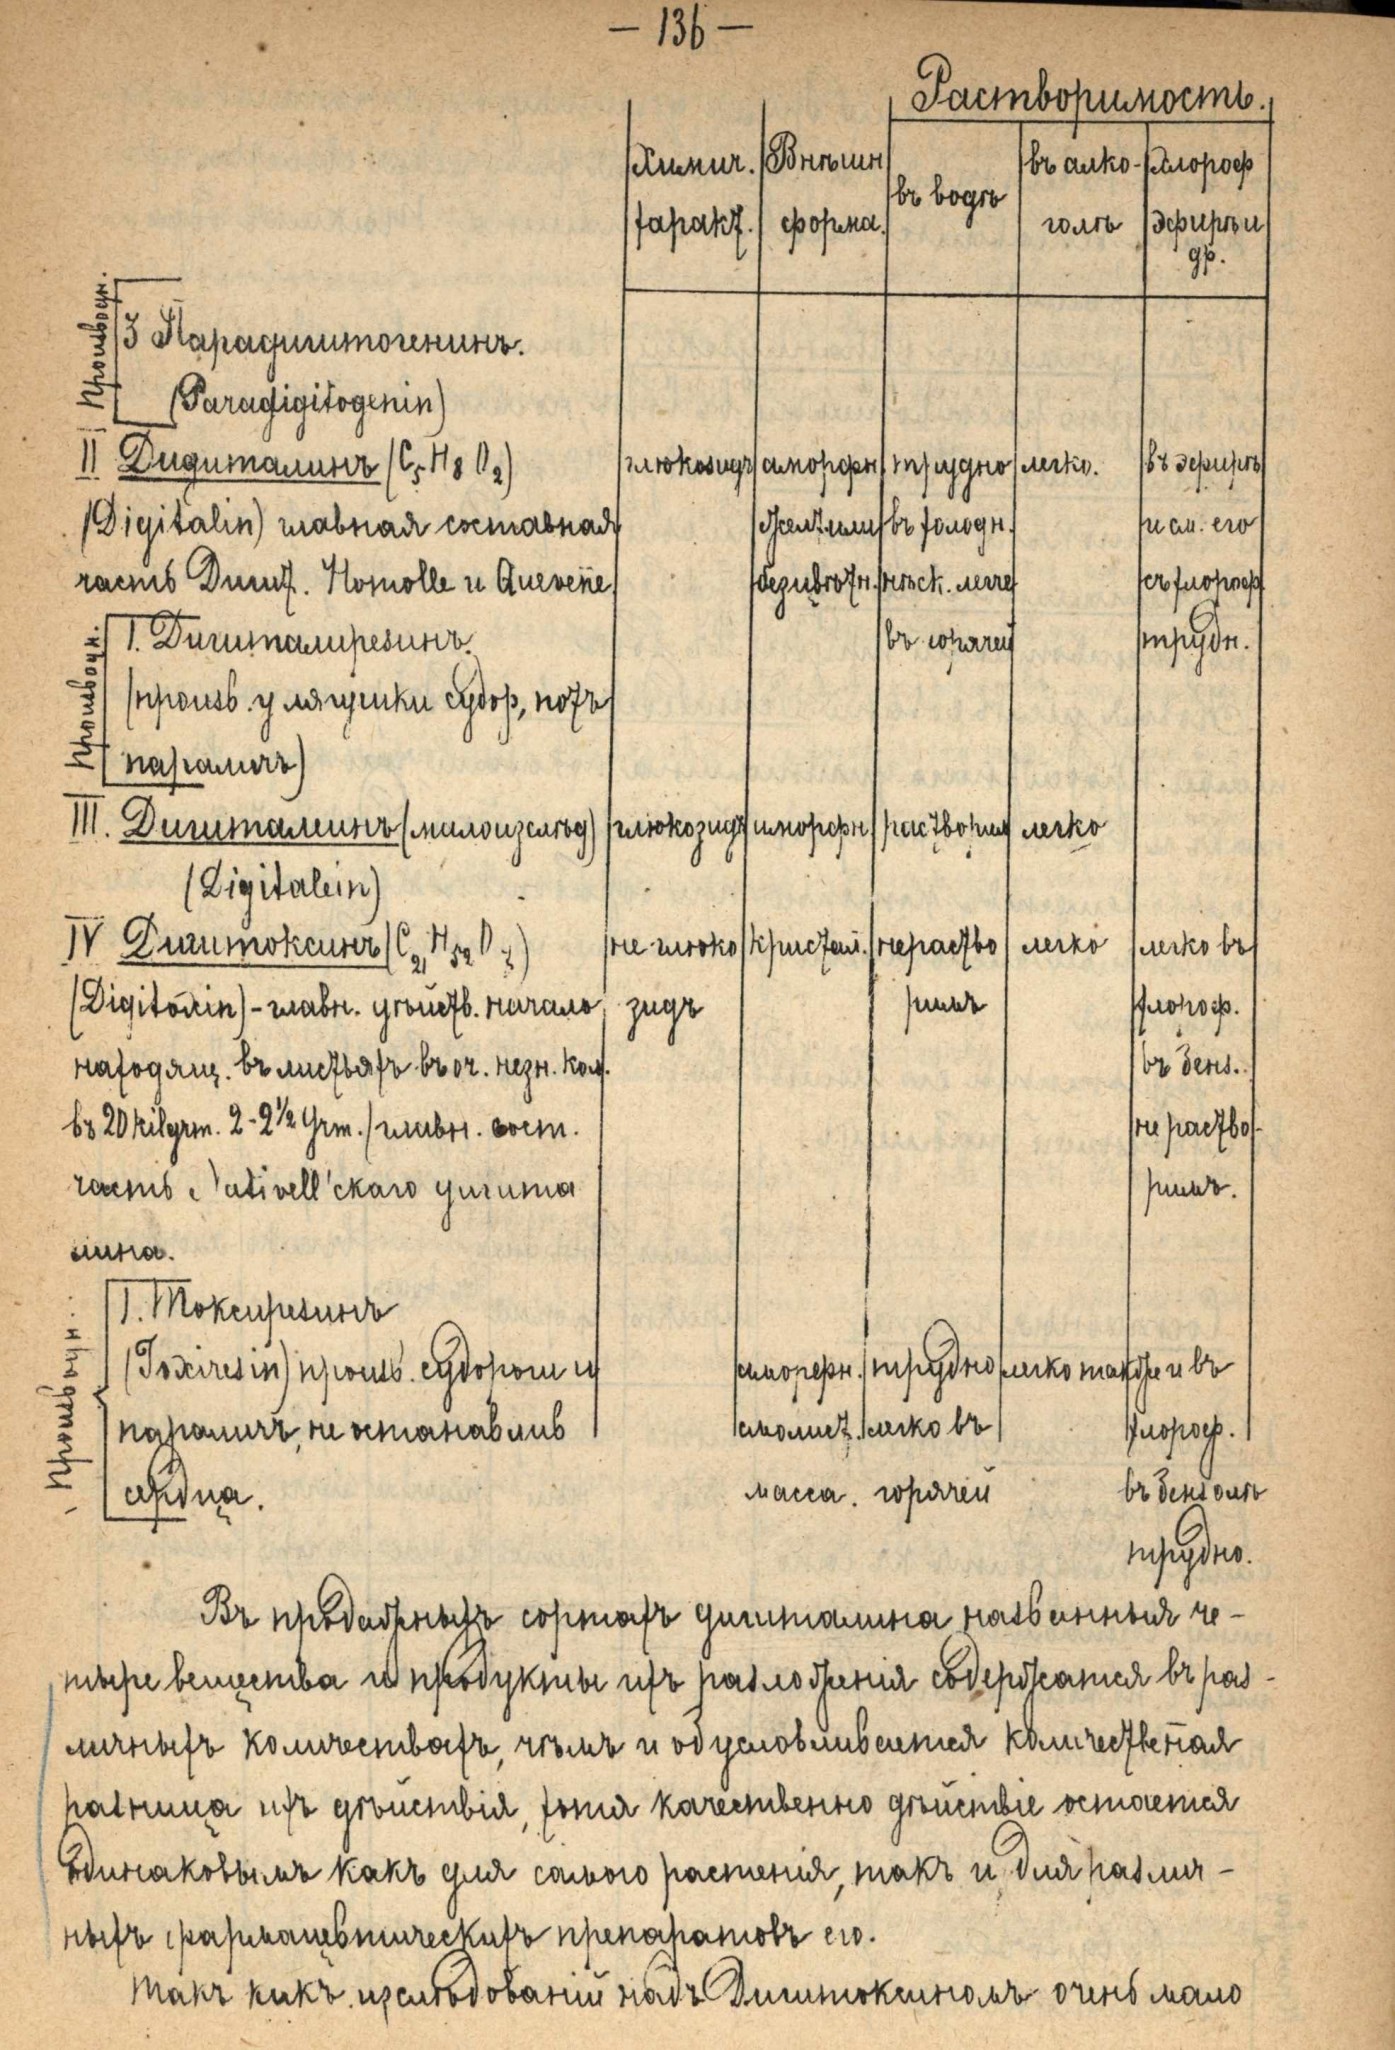 — 136 —
Растворимость.
Химич. Внѣшн въ алко- Хлороф
въ водѣ
характ. форма. голѣ эфирѣ и
др.
Производн.
3 Парадигитогенинъ.
(Paradigitogenin)
II Дигиталинъ (C5H8O2) глюкозидъ аморфн. трудно легко. въ эфирѣ
(Digitalin) главная составная желт или въ холодн. и см. его
часть Дигит. Homolle и Quevenne безцвѣтн. нѣск. легче съ хлороф
Производн.
1. Дигиталирезинъ. въ горячей трудн.
(произв. у лягушки судор, потъ
параличъ)
III. Дигиталеинъ (малоизслѣд) глюкозидъ аморфн растворим легко
(Digitalein)
IV Дигитоксинъ (C21H32O7) не глюко кристал. нераство легко легко въ
(Digitoxin) - главн. дѣйств. начало зидъ римъ хлороф.
находящ. въ листьяхъ въ оч. незн. кол. въ бенз.
въ 20 kilgrm. 2-2½ Grm. / главн. сост. не раство-
часть Nativell'скаго дигита римъ.
лина.
Производн.
1. Токсирезинъ
(Toxiresin) произв. судороги и аморфн. трудно легко также и въ
параличъ, не останавлив смолист. легко въ хлороф.
сердца. масса. горячей въ бензолѣ
трудно.
Въ продажныхъ сортахъ дигиталина названныя че-
тыре вещества и продукты ихъ разложенія содержатся въ раз-
личныхъ количествахъ, чѣмъ и обусловливается количественная
разница ихъ дѣйствія, хотя качественно дѣйствіе остается
одинаковымъ какъ для самого растенія, такъ и для различ-
ныхъ фармацевтическихъ препаратовъ его.
Такъ какъ изслѣдованій надъ Дигитоксиномъ очень мало